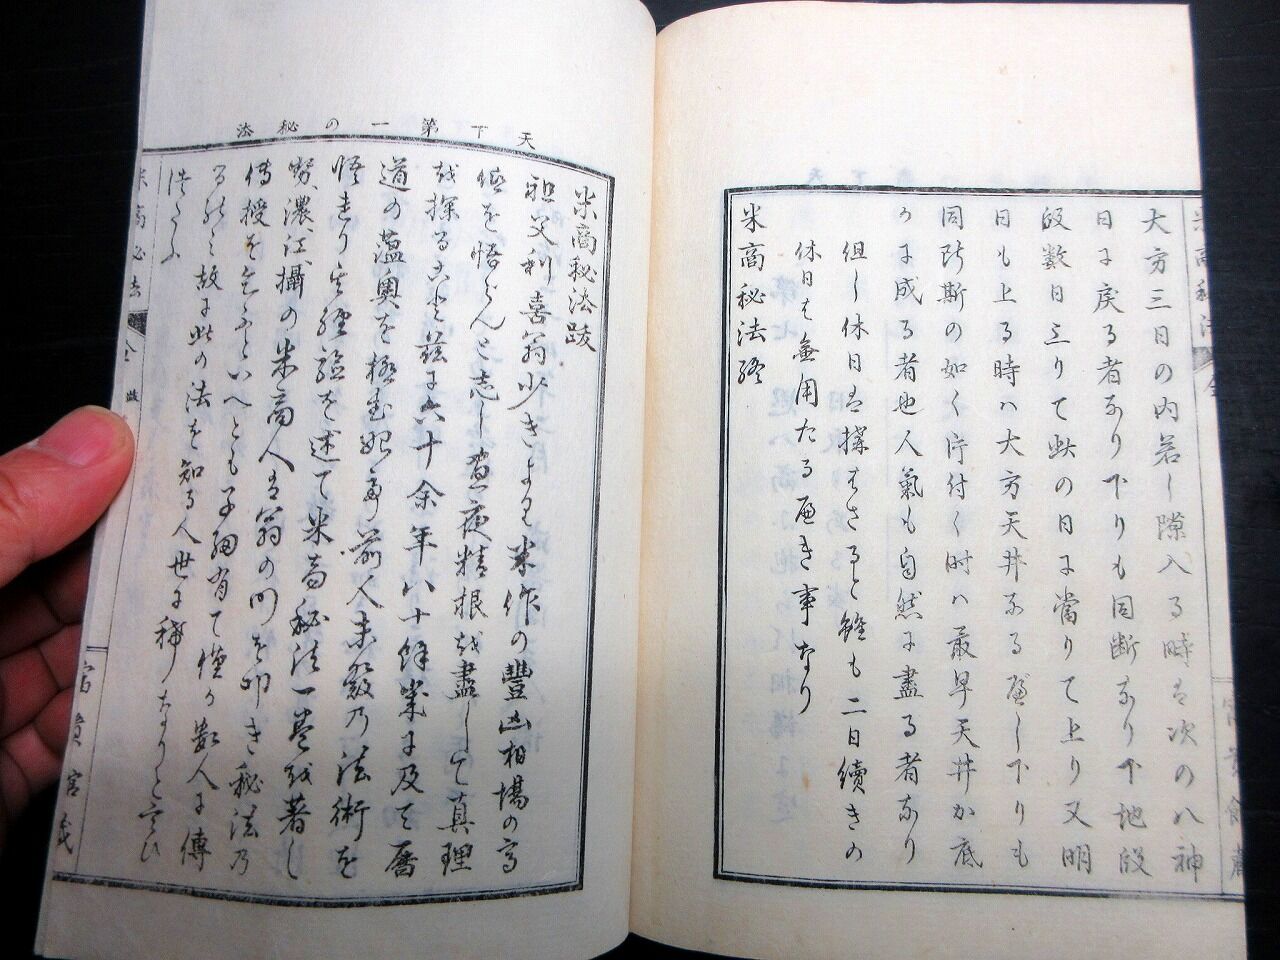 大方三日の内若し隙入る時は次の八神
日に戻る者なり下りも同断なり下地段
段数日上りて此の日に當りて上り又明
日も上る時ハ大方天井なるべし下りも
同断斯の如く片付く時ハ最早天井か底
かに成る者也人氣も自然に盡る者なり
但し休日は構はさると雖も二日續きの
休日は無用たるべき事なり
米商秘法終
天下第一の秘法
米商秘法跋
祖父利喜翁少きより米作の豐凶相塲の高
低を悟らんと志し昼夜精根を盡して真理
を探ることに六十余年八十餘歳に及て
道の蘊奥を極む前人未發乃法術を
悟り経验を述て米商秘法一巻を著し
濃、江、攝の米商人は翁の門を叩き秘法乃
傳授を乞ふといへとも子細有て僅か數人に傳
るのミ故に此の法を知る人世に稀なりと云ひ
傳ふ
米商必法 全 跋